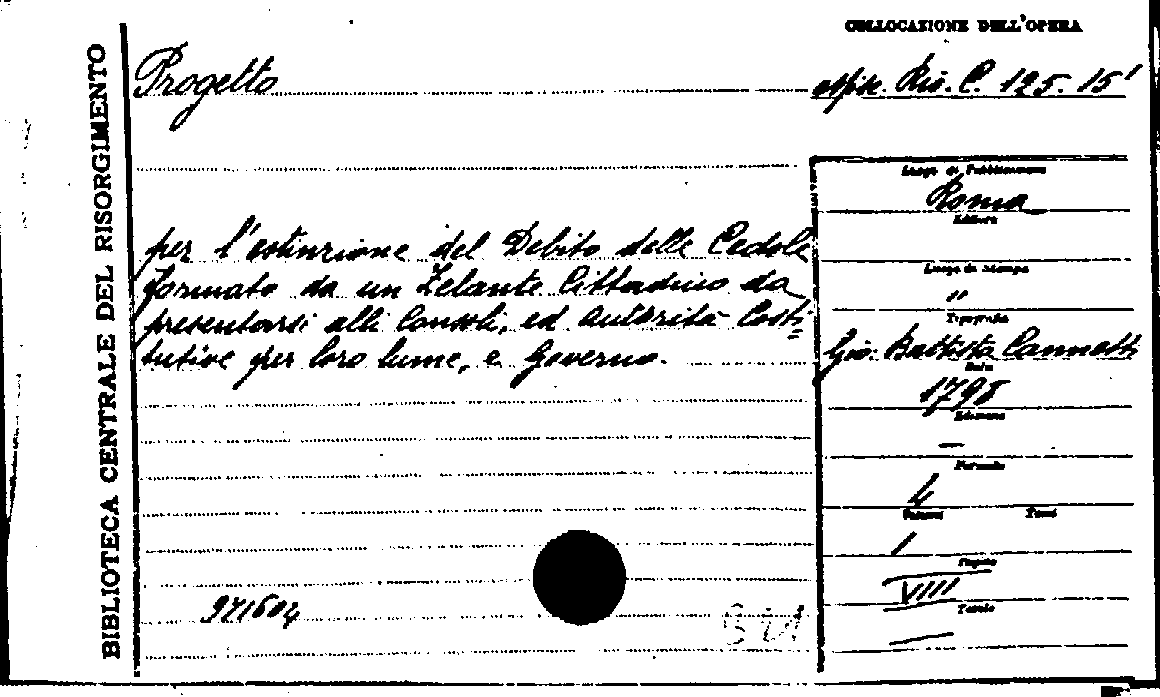 COLLOCAZIONE DELL'OPERA
BIBLIOTECA CENTRALE DEL RISORGIMENTO
Progetto
Misc. Ris. C. 125. 15'
per l'estinzione del Debito delle Cedole
formato da un Zelante Cittadino da
presentarsi alli Consoli, ed autorità Costi
tutive per loro lume, e Governo.
971604
Luogo di Pubblicazione
Roma
Editore
Luogo di stampa
"
Tipografia
Gio. Battista Cannetti
Data
1798
Edizione
—
Formato
4
Volumi Tomi
1
Pagine
VIII
Tavole
—